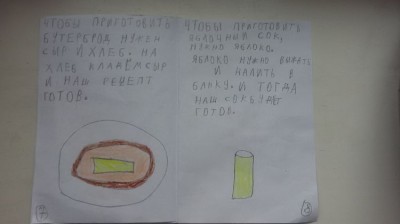 ЧТОБЫ ПРИГОТОВИТЬ
БУТЕРБРОД НУЖЕН
СЫР И ХЛЕБ. НА
ХЛЕБ КЛАДЁМ СЫР
И НАШ РЕЦЕПТ
ГОТОВ.
ЧТОБЫ ПРИГОТОВИТЬ
ЯБЛОЧНЫЙ СОК,
НУЖНО ЯБЛОКО.
ЯБЛОКО НУЖНО
И НАЛИТЬ В
БАНКУ. И ТОГДА
НАШ СОК БУДЕТ
ГОТОВ.